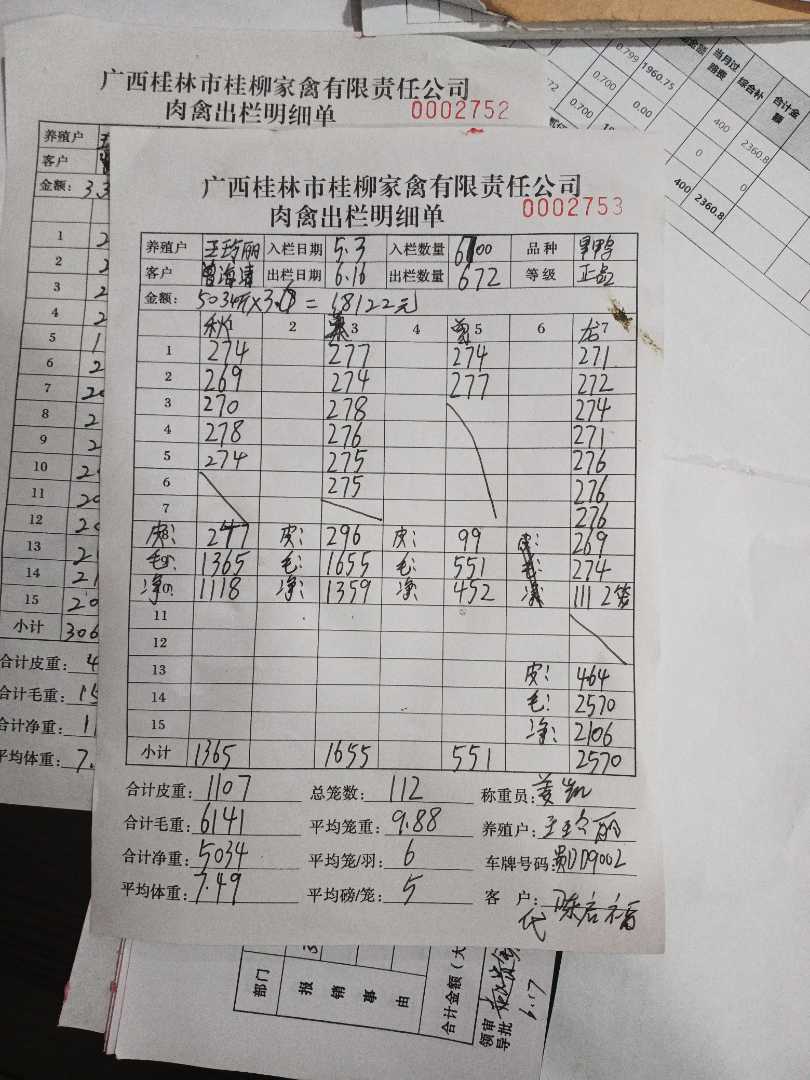 广西桂林市桂柳家禽有限责任公司
肉禽出栏明细单 0002752
养殖户
客户
金额: 3.3
1 2
2 2
3 2
4 2
5 1
6 2
7 20
8 2
9 2
10 2
11 20
12 20
13 2
14 21
15 20
小计 306
合计皮重: 4
合计毛重: 15
合计净重: 11
平均体重: 7.
0.799 1960.75
当月过
赔费
综合补
合计金
额
0.700 0.00 400 2360.8
0.700 0 0
400 2360.8
广西桂林市桂柳家禽有限责任公司
肉禽出栏明细单 0002753
养殖户 王玲丽 入栏日期 5.3 入栏数量 6700 品种
客户 曾海清 出栏日期 6.16 出栏数量 672 等级 正品
金额: 5034斤×3.6 = 18122元
1 2 3 4 5 6 右7
1 274 277 274 271
2 269 274 277 272
3 270 278 274
4 278 276 271
5 274 275 276
6 275 276
7 276
皮: 247 皮: 296 皮: 99 269
毛: 1365 毛: 1655 毛: 551 274
净: 1118 净: 1359 净: 452 112笼
11
12
13 皮: 464
14 毛: 2570
15 净: 2106
小计 1365 1655 551 2570
合计皮重: 1107 总笼数: 112 称重员:
合计毛重: 6141 平均笼重: 9.88 养殖户: 王玲丽
合计净重: 5034 平均笼/羽: 6 车牌号码: 贵DD9002
平均体重: 7.49 平均磅/笼: 5 客 户: 陈启福
代
部门
报销事由
合计金额(大
领导
审批
6.17